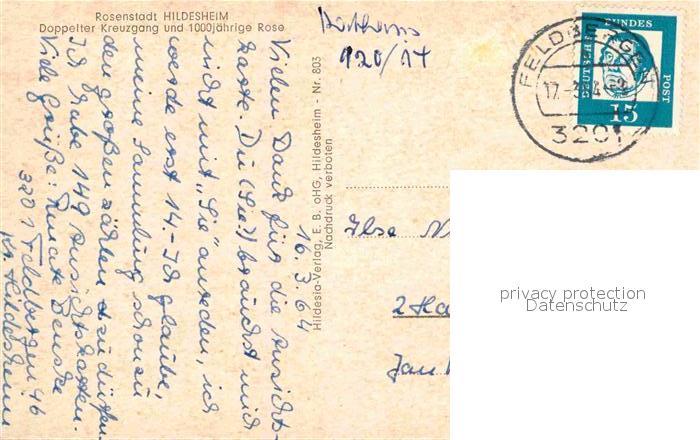 Rosenstadt HILDESHEIM
Doppelter Kreuzgang und 1000jährige Rose
920/17
16.3.64
Vielen Dank für die Ansichts-
karte. Du (Sie?) brauchst mich
nicht mit „Sie" anreden, ich
werde erst 14.- Ich glaube,
meine Sammlung schon zu
den großen zählen zu dürfen.
Ich habe 149 Ansichtskarten.
Viele Grüße: Renate
3201 Feldbergen 46
Kr. Hildesheim
Hildesia-Verlag, E. B. oHG, Hildesheim - Nr. 803
Nachdruck verboten
FELDBERGEN
17.-3.64
3201
DEUTSCHE BUNDESPOST
15
Ilse
2 Ha
Jan
privacy protection
Datenschutz